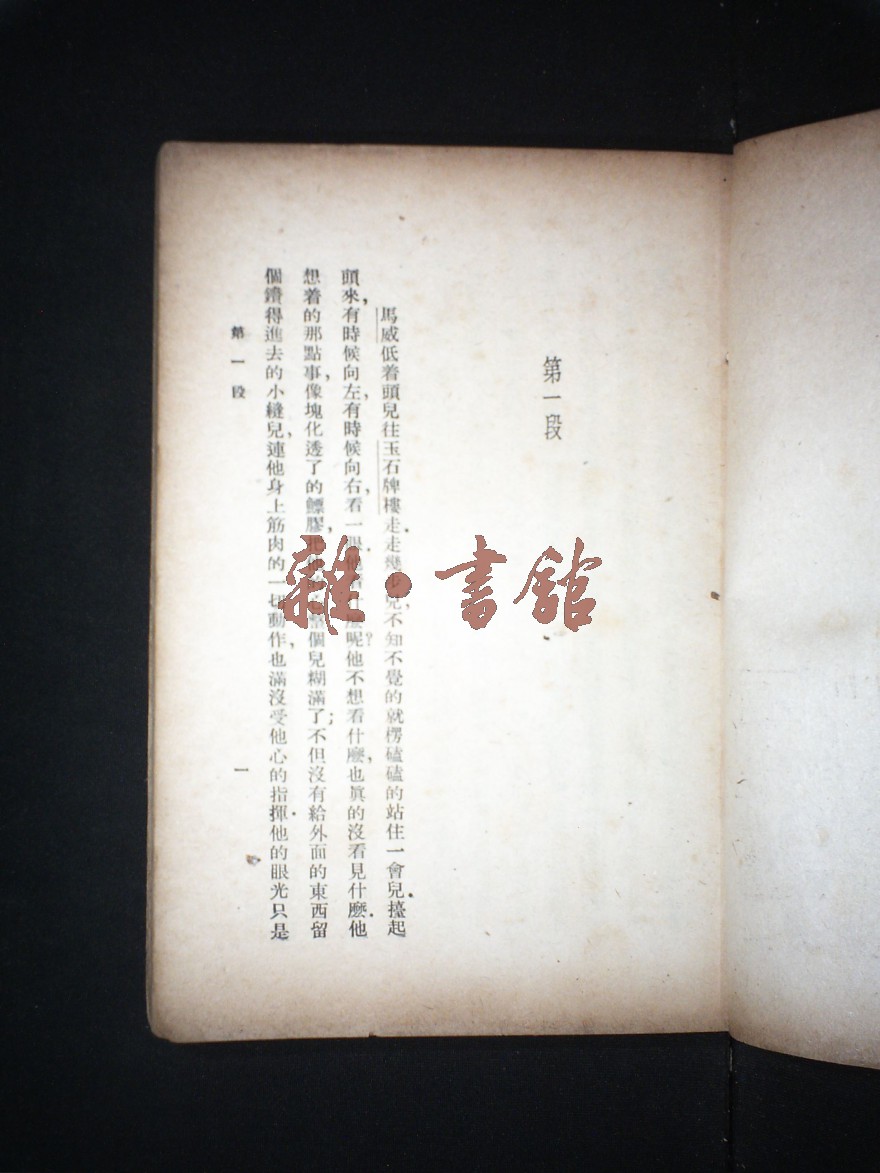 第一段
馬威低着頭兒往玉石牌樓走.走幾步兒,不知不覺的就楞磕磕的站住一會兒.擡起
頭來,有時候向左,有時候向右,看一眼.他看什麼呢?他不想看什麽,也眞的沒看見什麽.他
想着的那點事,像塊化透了的鰾膠,把他的心整個兒糊滿了;不但沒有給外面的東西留
個鑽得進去的小縫兒,連他身上筋肉的一切動作,也滿沒受他心的指揮.他的眼光只是
第一段
一
雜·書館